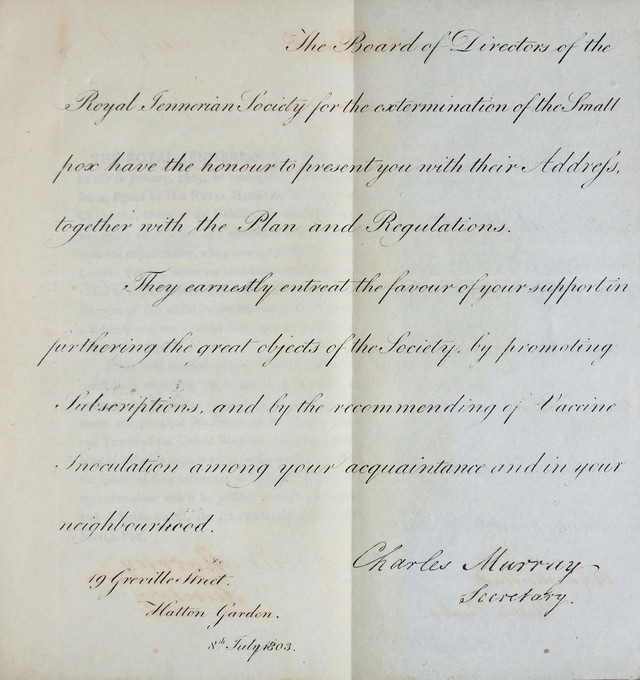 The Board of Directors of the
Royal Jennerian Society for the extermination of the Small
pox have the honour to present you with their Addreſs,
together with the Plan and Regulations.
They earnestly entreat the favour of your support in
furthering the great objects of the Society, by promoting
Subscriptions, and by the recommending of Vaccine
Inoculation among your acquaintance and in your
neighbourhood.
Charles Murray
Secretary.
19 Greville Street.
Hatton Garden.
8th July 1803.